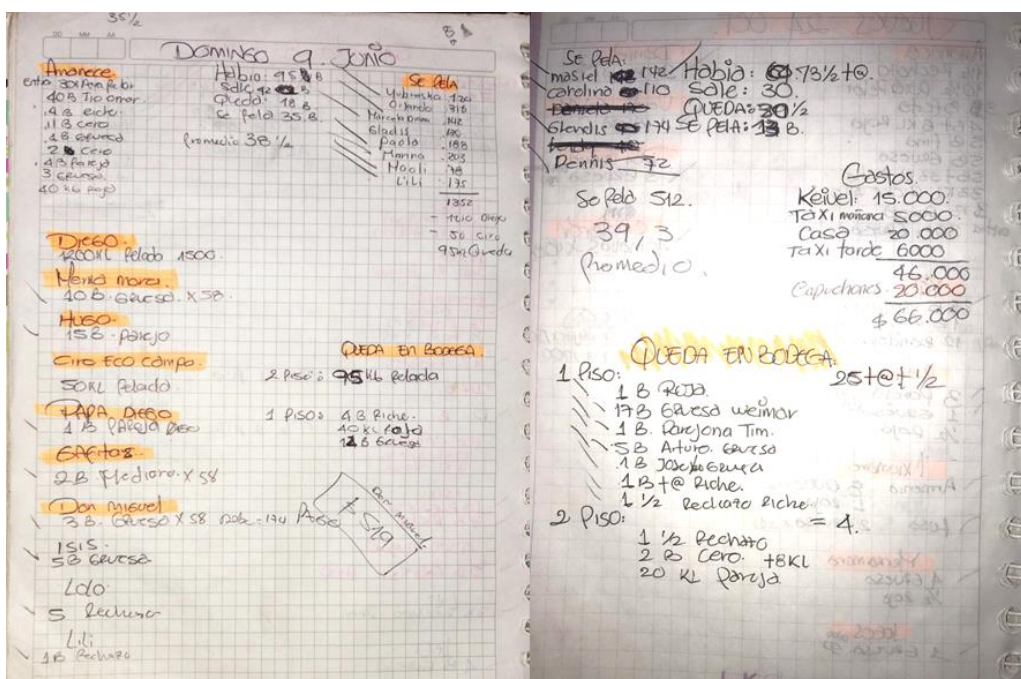 35½
DOMINGO 9. JUNIO
Amanece
40B Tio Omar
4 B Riche
11 B Cero
1 B Gruesa
2 B Cero
4 B Pareja
3 Gruesa
40 kb Roja
Había: 95 B
Sale 42 B
Queda: 18 B
Se pela 35 B.
Promedio 38 ½
Se Pela
120
Orlando 318
Gladis
Paola 188
Marina 203
Lili 175
1352
- 1210 Diego
- 50 Ciro
Queda
DIEGO.
1200KL Pelado 1500.
10 B. Gruesa. X 58.
HUGO
15B. Parejo
Ciro Eco Campo.
50KL Pelado.
PAPA DIEGO
1 B Pareja Diego
2B Mediana. X 58
Don Miguel
3 B. Gruesa X 58
Don Miguel
7 519
ISIS.
5B Gruesa
Lolo
5 Rechazo
Lili
1B Rechazo
QUEDA EN BODEGA
2 Piso: 95 Kb Pelada
1 Piso: 4 B Riche.
40 KL Roja
B Gruesa
SE PELA:
masiel 142
carolina 110
Glendis 174
Dennis 72
Se Pela 512.
39/3
Promedio.
Había: 73½ +@.
Sale: 30.
QUEDA: 30½
SE PELA: 13 B.
Gastos.
Keivel: 15.000.
Taxi mañana 5000.
Casa 20.000
Taxi tarde 6000
46.000
Capuchones 20.000
$ 66.000
QUEDA EN BODEGA.
1 Piso: 25+@+½
1 B Roja.
17B Gruesa Weimar
1 B. Parejona Tim.
5B Arturo. Gruesa
1 B Joselo Gruesa
1 B +@ Riche.
1 ½ Rechazo Riche
2 Piso: = 4.
1 ½ Rechazo
2 B Cero. +8KL
20 KL Pareja